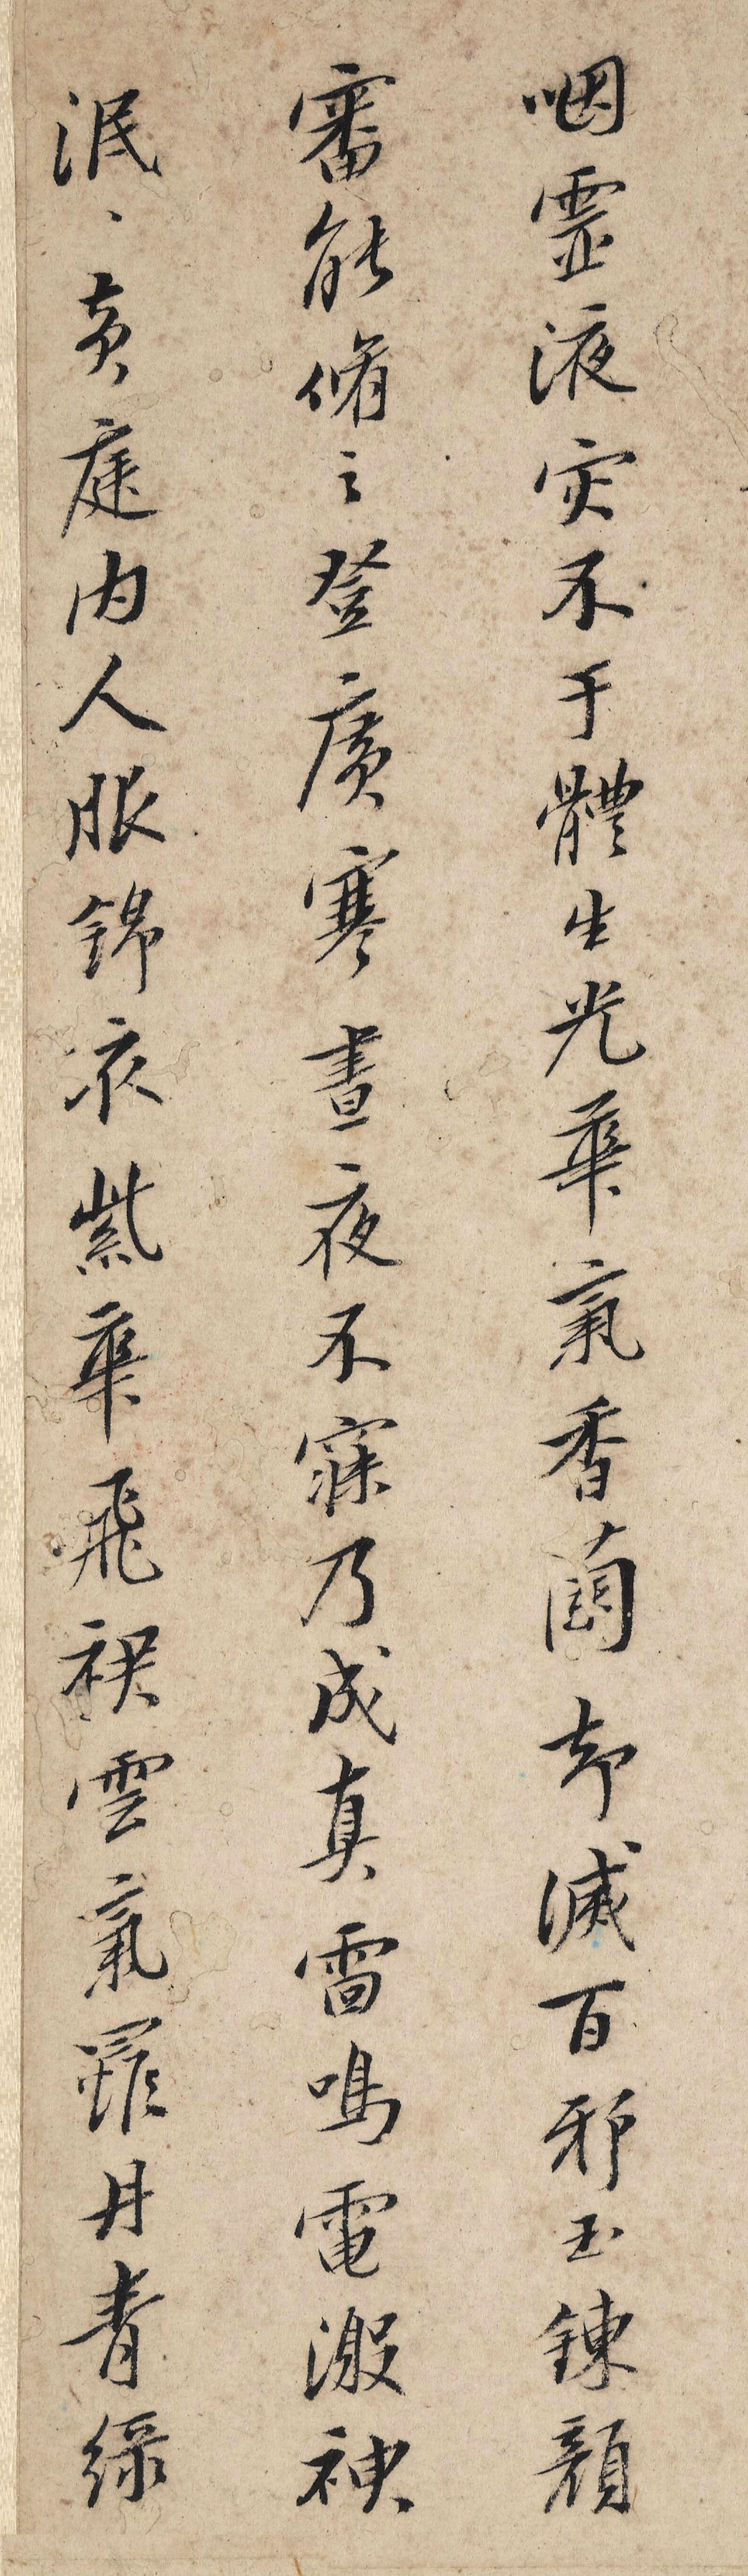 咽霊液灾不干體生光華氣香蘭却滅百邪玉錬顔
審能脩之登廣寒晝夜不寐乃成真雷鳴電激神
泯〻黄庭内人服錦衣紫華飛裙雲氣羅丹青緑